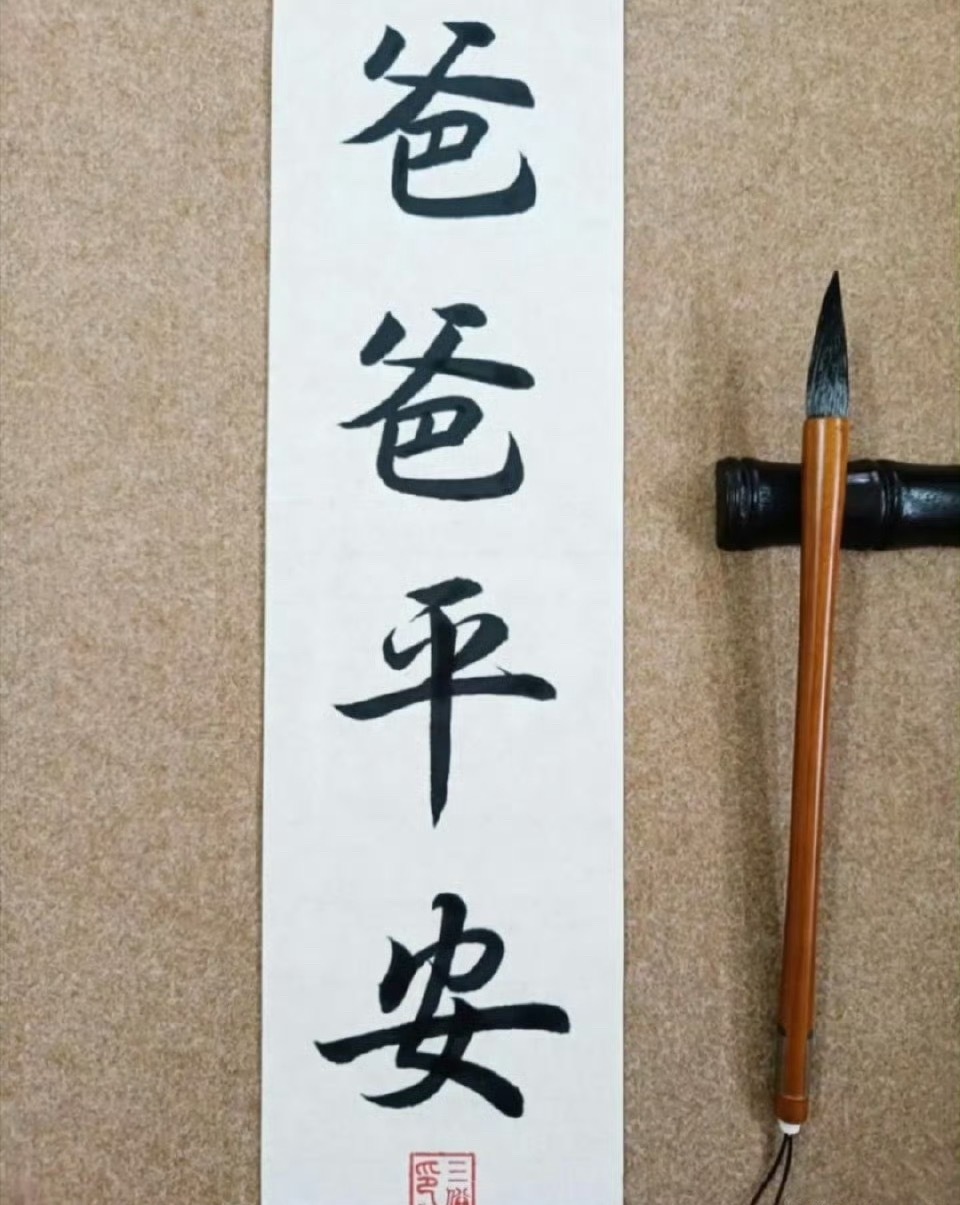 爸爸平安